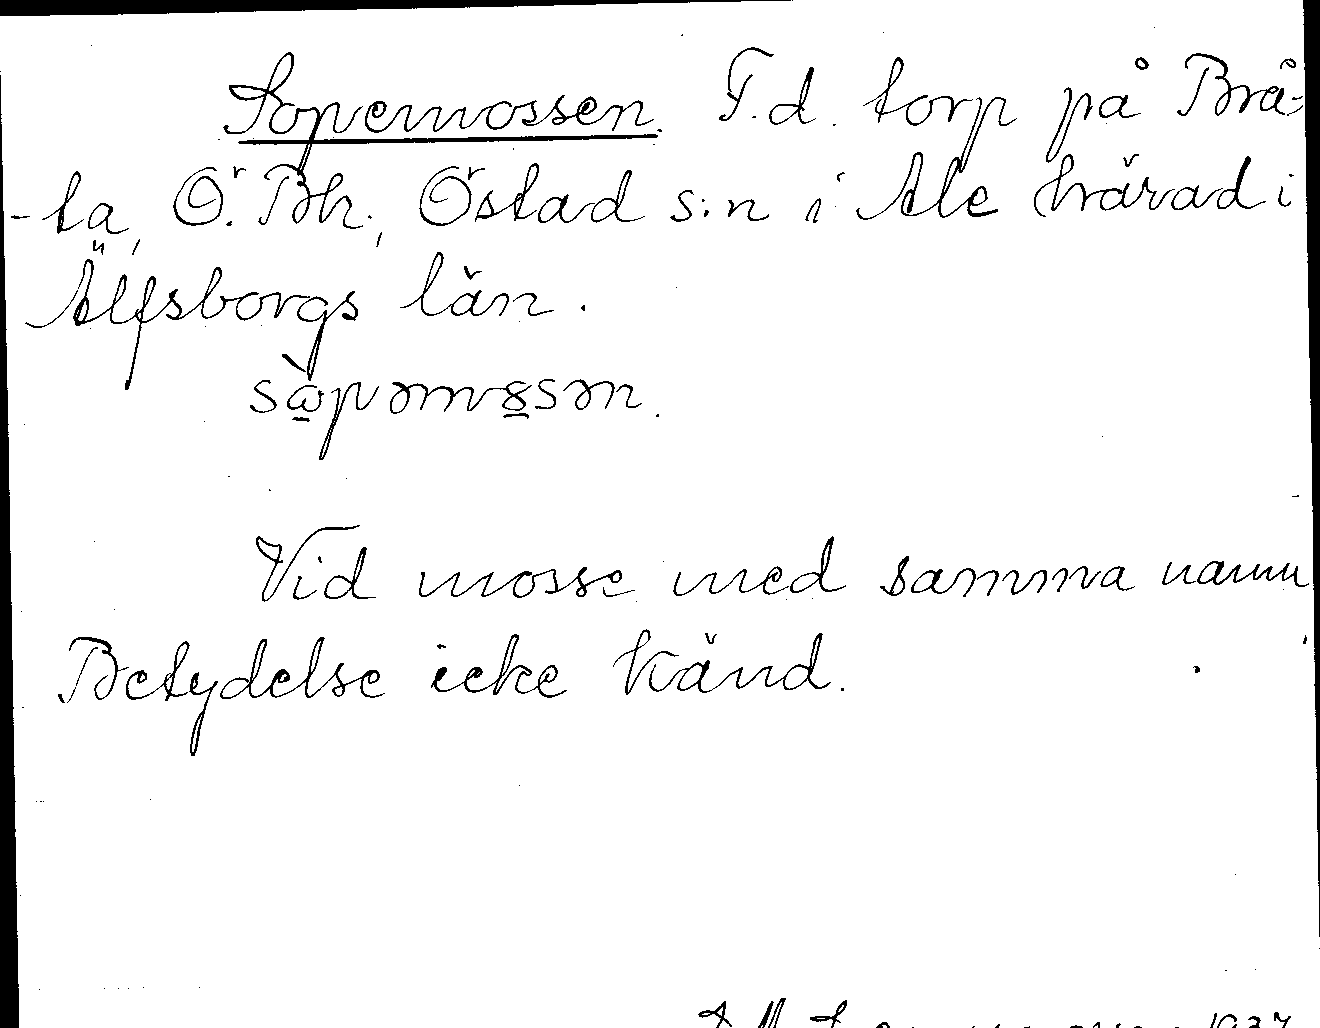 Sopemossen. F.d. torp på Brå-
-ta, Ö. Bh., Östad s:n i Ale härad i
Älfsborgs län.
sὼpəmȣsən.
Vid mosse med samma namn
Betydelse icke känd.
1937